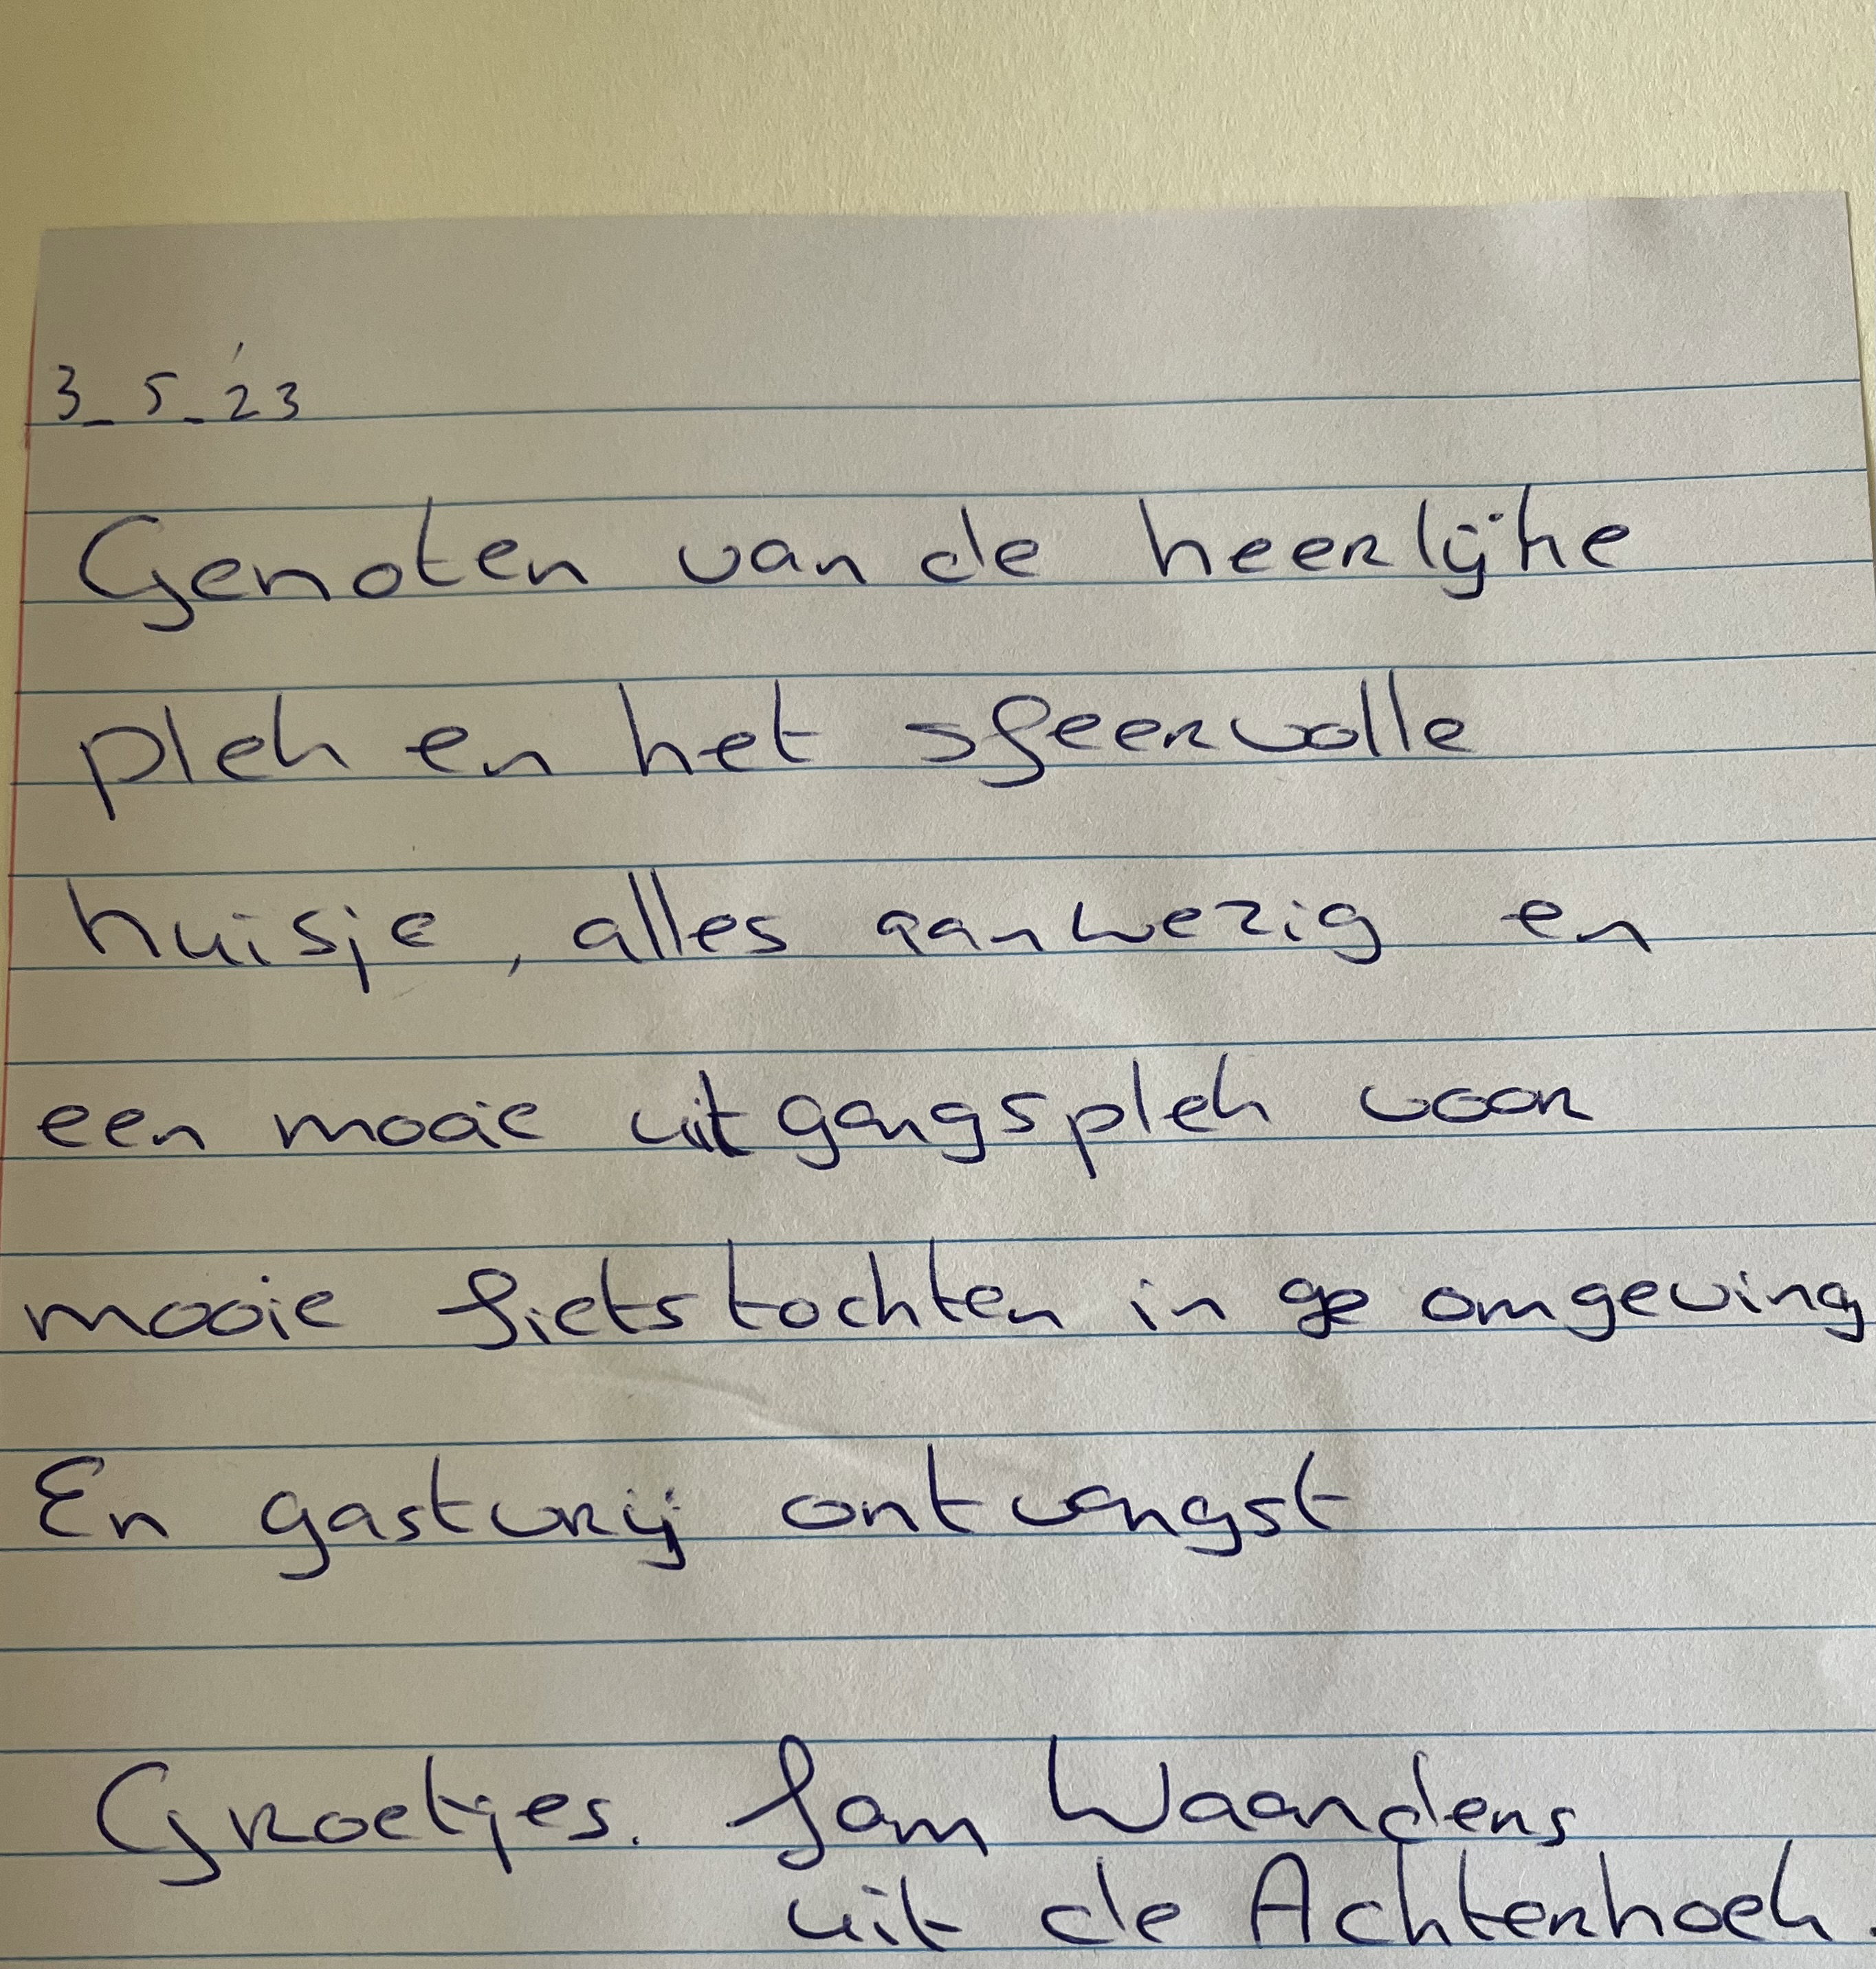 3-5-'23
Genoten van de heerlijke
plek en het sfeervolle
huisje, alles aanwezig en
een mooie uitgangsplek voor
mooie fietstochten in ge omgeving
En gastvrij ontvangst
Groetjes. fam Waardens
uit de Achterhoek.